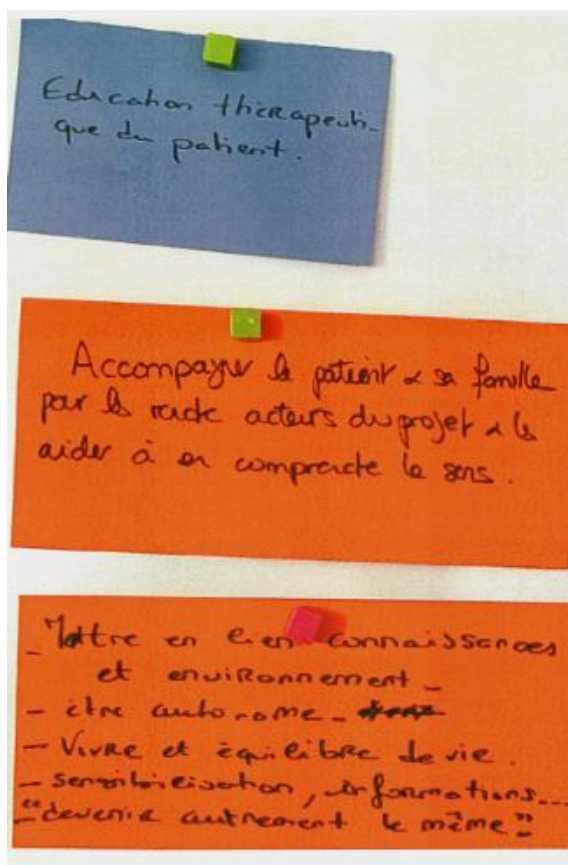 Education thérapeuti-
que du patient.
Accompagner le patient & sa famille
pour les rendre acteurs du projet & les
aider à en comprendre le sens.
- Mettre en lien connaissances
et environnement -
- être autonome -
- Vivre et équilibre de vie.
- sensibilisation, informations...
- "devenir autrement le même"